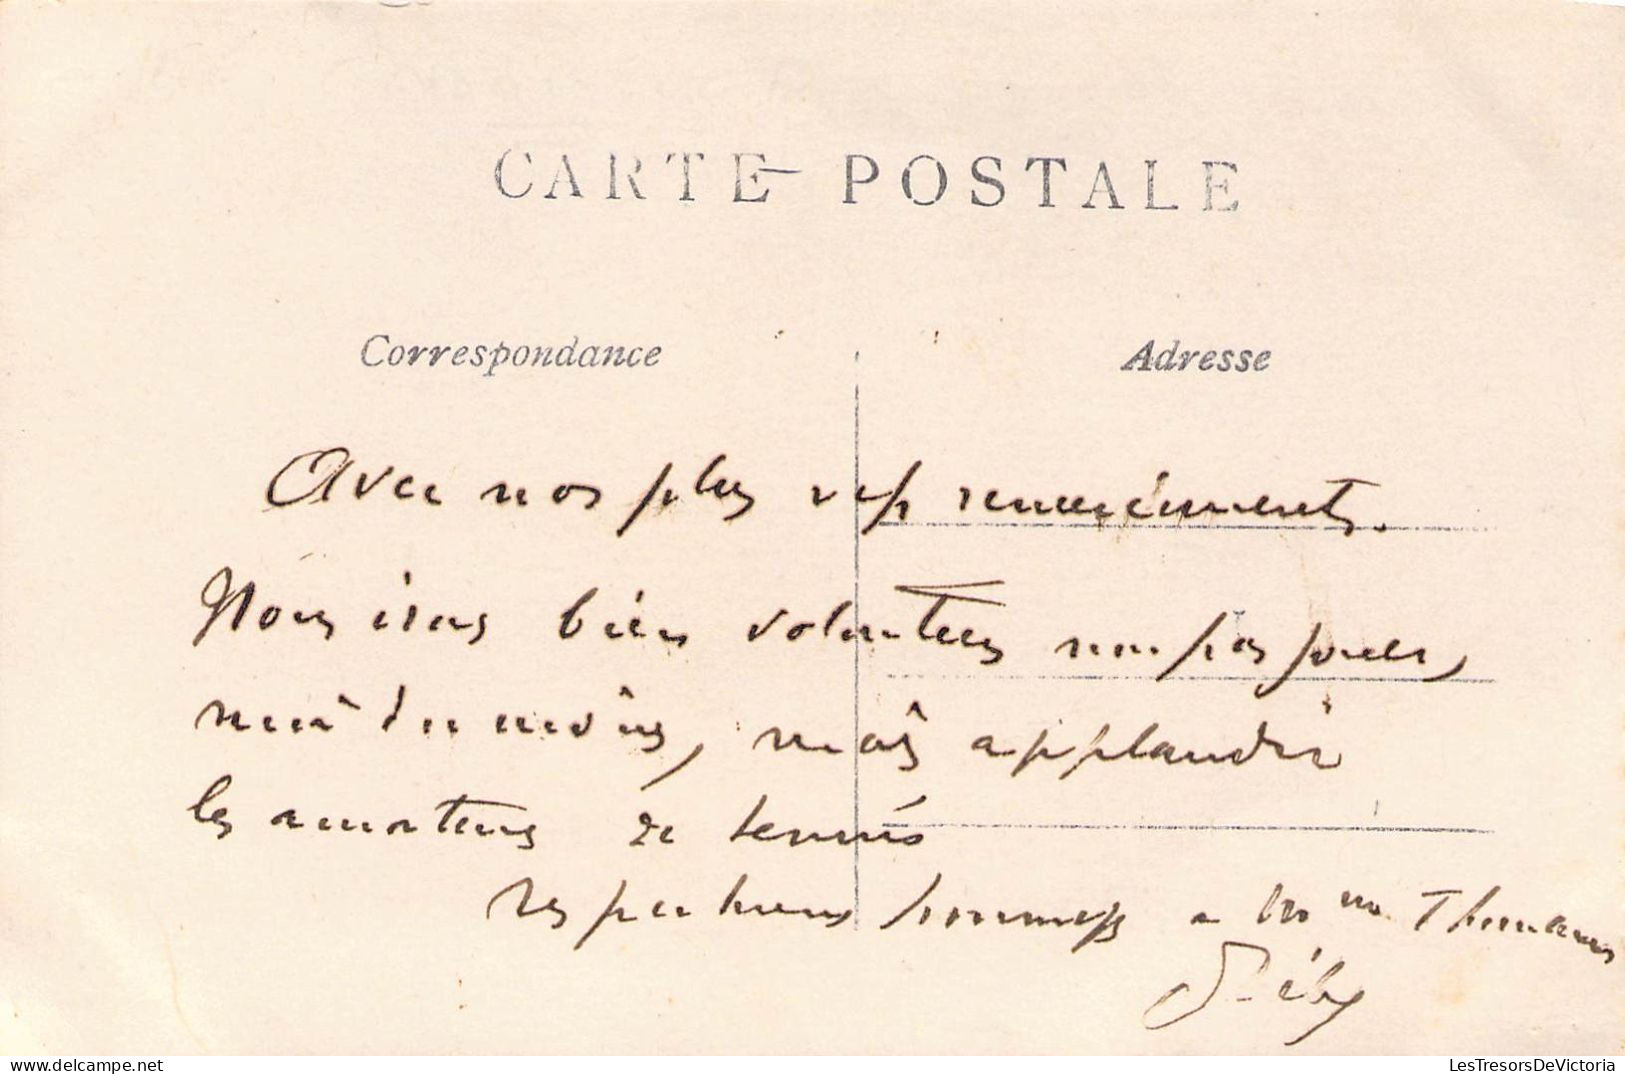 CARTE POSTALE
Correspondance
Adresse
Avec nos plus vifs remerciements.
Nous irons bien volontiers non pas jouer,
moi du moins, mais applaudir
les amateurs de tennis
respectueux hommages a Mme
LesTresorsDeVictoria